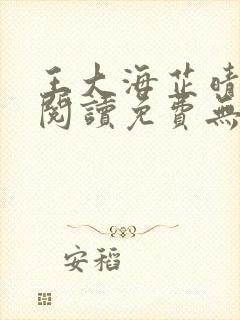 王大海芷晴
閱讀免費無
安稻